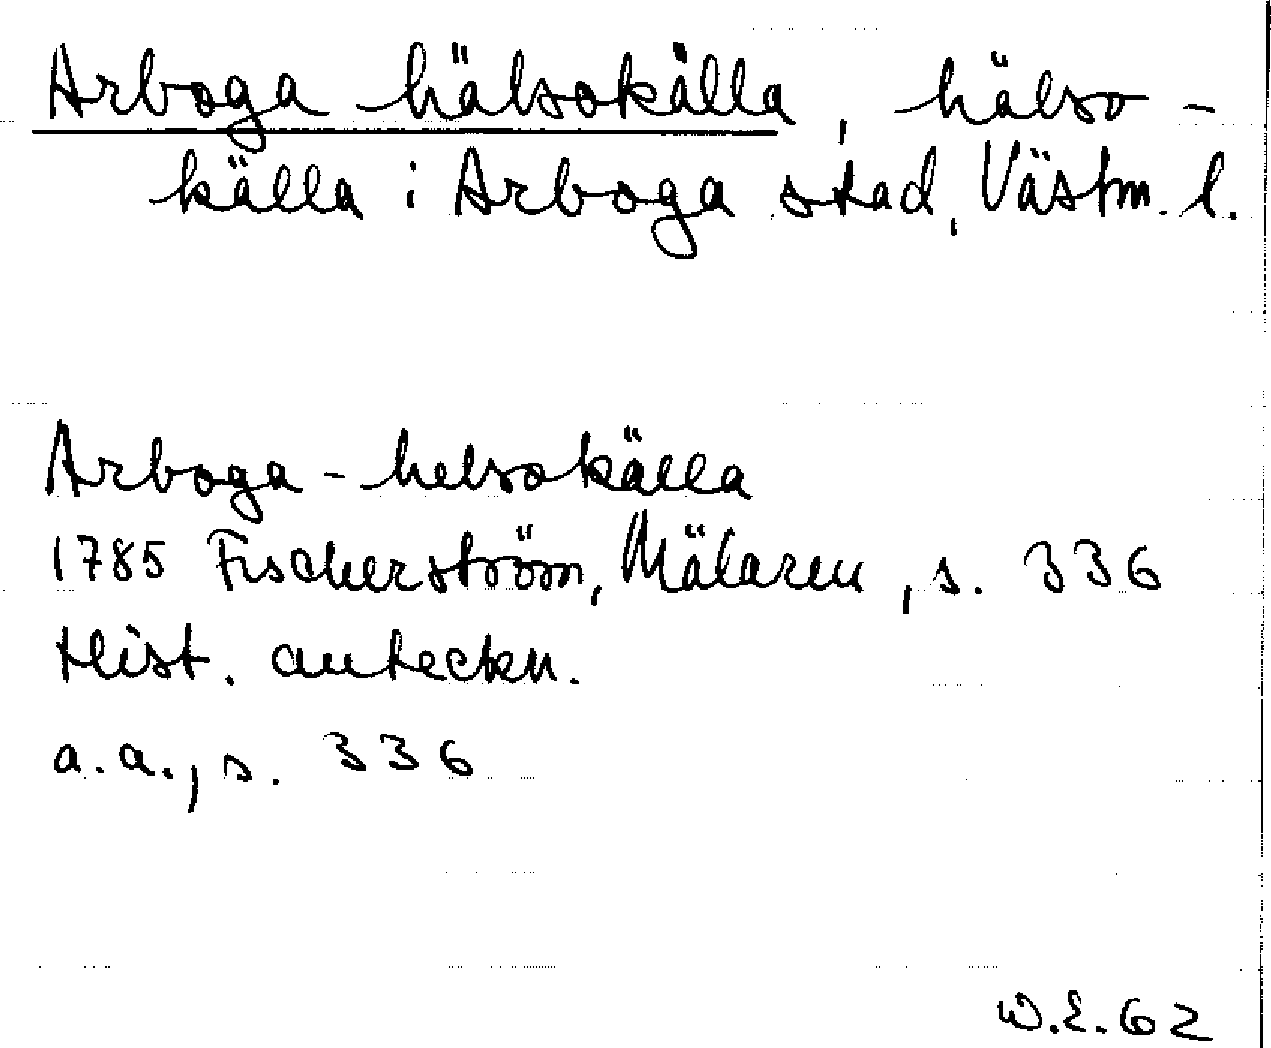 Arboga hälsokälla, hälso-
källa i Arboga stad, Västm. l.
Arboga-helsokälla
1785 Fischerström, Mälaren, s. 336
Hist. anteckn.
a.a., s. 336
W.E. 62